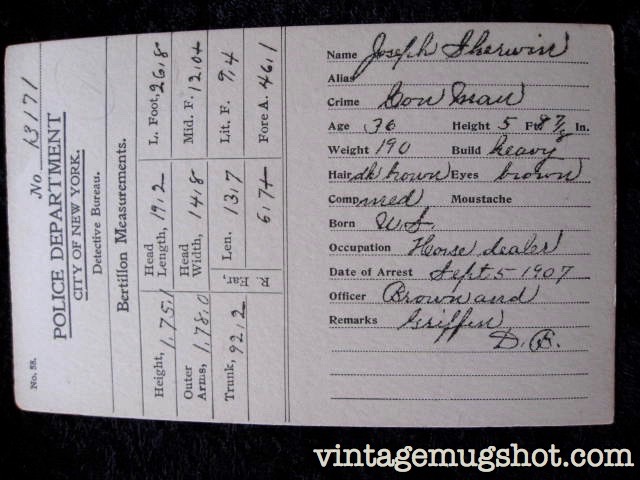 No. 13171
POLICE DEPARTMENT
CITY OF NEW YORK.
Detective Bureau.
Bertillon Measurements.
Height, 1,75.1 Head Length, 19,2 L. Foot, 26,8
Outer Arms, 1,78.0 Head Width, 14,8 Mid. F. 12,0+
Trunk, 92,2 R. Ear, Len. 13,7 Lit. F. 9,4
6,7+ Fore A. 46,1
No. 58.
Name Joseph Sherwin
Alias
Crime Con Man
Age 36 Height 5 Ft 8 7/8 In.
Weight 190 Build heavy
Hair dk brown Eyes brown
Comp med Moustache
Born U.S.
Occupation Horse dealer
Date of Arrest Sept 5 1907
Officer Brown and
Remarks Griffen
D.B.
vintagemugshot.com